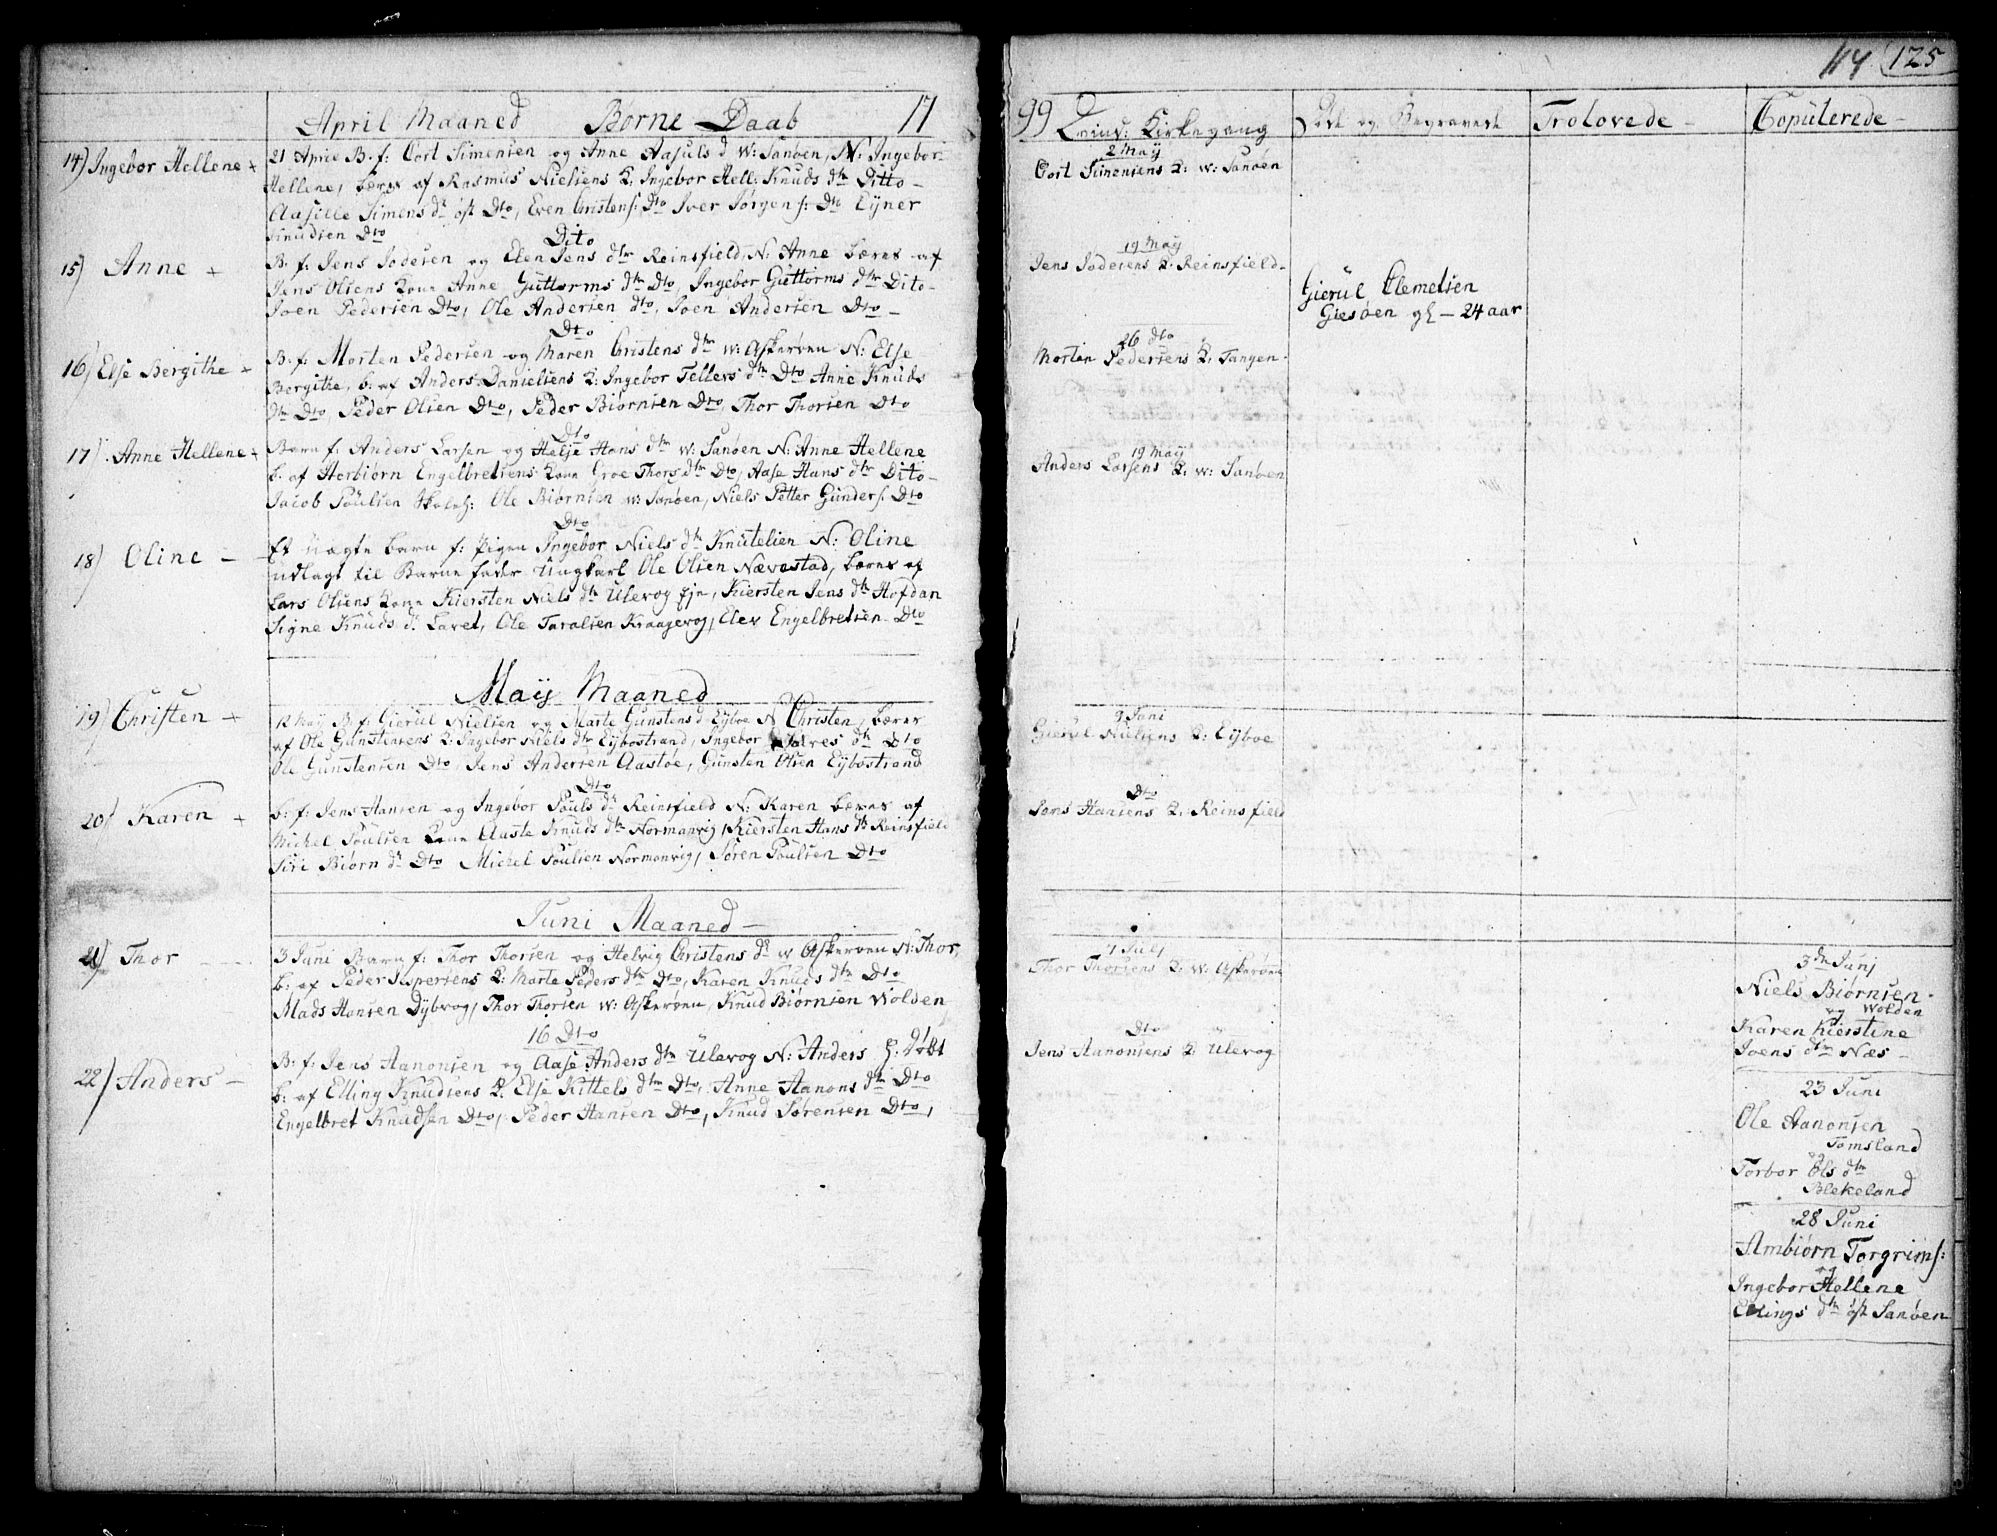 April Maaned Børne Daab 17
14) Ingebor Hellene +
21 April B. f: Cort Simensen og Anne Aasuls d W: Sanøen, N: Ingebor
Hellene, bæres af Rasmus Nielsens K. Ingebor Hell: Knuds dtr Ditto
Aasille Simens dr øst Dto, Even Christens: Dto Iver Jørgens: Dto Eyner
Knudsen Dto
Dito
15) Anne +
B. f: Jens Jodesen og Elen Jens dtr Reinsfield, N: Anne bæres af
Jens Olsens Kone Anne Guttorms dtr Dto, Ingebor Guttorms dtr Dito
Joen Pedersen Dto, Ole Andersen dto, Joen Andersen Dto
Dto
16) Else Bergithe +
B. f: Morten Pedersen og Maren Christens dtr W: Askerøen N: Else
Bergithe, b: af Anders Danielsens K: Ingebor Tellefs dtr Dto Anne Knuds
dtr Dto, Peder Olsen Dto, Peder Biørnsen Dto, Thor Thorsen Dto
Dto
17) Anne Hellene +
Barn f: Anders Larsen og Helje Hans dtr W: Sanøen N: Anne Hellene
b. af Torbiørn Engelbretsens Kone Groe Thors dtr Dto, Aase Hans dtr Dito
Jacob Poulsen Skoleh: Ole Biørnsen W: Sanøen, Niels Petter Gunders: Dto
Dto
18) Oline
Et uægte barn f: Pigen Ingebor Niels dtr Knutelien N: Oline
udlagt til Barne fader Ungkarl Ole Olsen Nævestad, bæres af
Lars Olsens Kone Kiersten Niels dtr Ulevog Eje, Kiersten Jens dtr Hofdan
Signe Knuds dr Lavet, Ole Taralsen Kraagevog, Elev Engelbretsen Dto
May Maaned
19) Christen +
12 May B. f: Gierul Nielsen og Marte Gunstens d Eyboe N Christen, bæres
af Ole Gunstensens K: Ingebor Niels dtr Eybostrand, Ingebor dtr Dto
Ole Gunstensen Dto, Jens Andersen Aastøe, Gunsten Olsen Eybostrand
Dto
20) Karen +
b: f: Jens Hansen og Ingebor Pouls dr Reinsfield N: Karen bæres af
Michel Poulsen Kone Aaste Knuds dtr Normanvig, Kiersten Hans dr Reinsfield
Siri Biørn dr Dto Michel Poulsen Normanvig, Søren Poulsen Dto
Juni Maaned
21) Thor
3 Juni Barn f: Thor Thorsen og Helvig Christens dr W Askerøen N: Thor,
b: af Peder Jespersens K: Marte Peders dtr Dto, Karen Knuds dtr Dto
Mads Hansen Dybvog, Thor Thorsen W: Askerøen, Knud Biørnsen Wolden
16 Dto
22) Anders
B. f: Jens Aanonsen og Aase Anders dtr Ulevog N: Anders H: Døbt
b: af Elling Knudsens K. Else Kittels dtr Dto, Anne Aanons dtr Dto
Engelbret Knudsen Dto, Peder Hansen Dto, Knud Sørensen Dto,
114 125
99 Kirkegang
2 May
Cort Simensens K: W: Sanøen
19 May
Jens Jodesens K. Reinsfield
26 dto
Morten Pedersens K. Tangen
19 May
Anders Larsens K: W: Sanøen
9 Juni
Gierul Nielsens K: Eyboe
Dto
Jens Hansens K. Reinsfield
7 Julj
Thor Thorsens K: W: Askerøen
Dto
Jens Aanonsens K Ulevog
Døde og Begravede
Gierul Clemetsen
Giesøen gl 24 aar
Trolovede
Copulerede
3de Junj
Niels Biørnsen
og Wolden
Karen Kierstine
Joens dtr Næs
23 Juni
Ole Aanonsen
Tomsland
og
Torbor Ols dtr
Blekeland
28 Juni
Ambiørn Torgrims:
og
Ingebor Hellene
Ellings dtr øst Sanøen